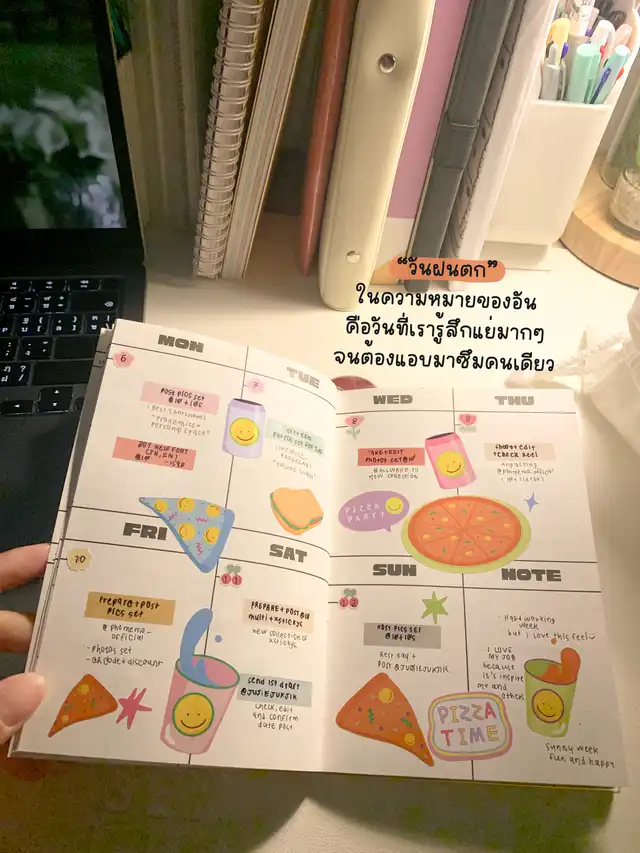 “วันฝนตก”
ในความหมายของอัน
คือวันที่เรารู้สึกแย่มากๆ
จนต้องแอบมาซึมคนเดียว
MON
6
POST PICS SET
TUE
7
WED
8
NEW COLLECTION
PIZZA
PARTY
THU
9
SHOOT + EDIT
+ CHECK REEL
FRI
10
PREPARE + POST
PICS SET
@ phomemo -
official
- PHOTOS SET
- QR CODE + DISCOUNT
SAT
11
PREPARE + POST
multi + xstickyc
NEW COLLECTION OF
XSTICKYC
SEND 1ST DRAFT
@JUJIEJUKJIK
CHECK, EDIT
and confirm
date post
SUN
12
POST PICS SET
REST DAY +
POST @JUJIEJUKJIK
PIZZA
TIME
NOTE
- Hard working
week
but i love this feel
- I LOVE
MY JOB
because
it's inspire
me and
others
Sunny week
fun and happy